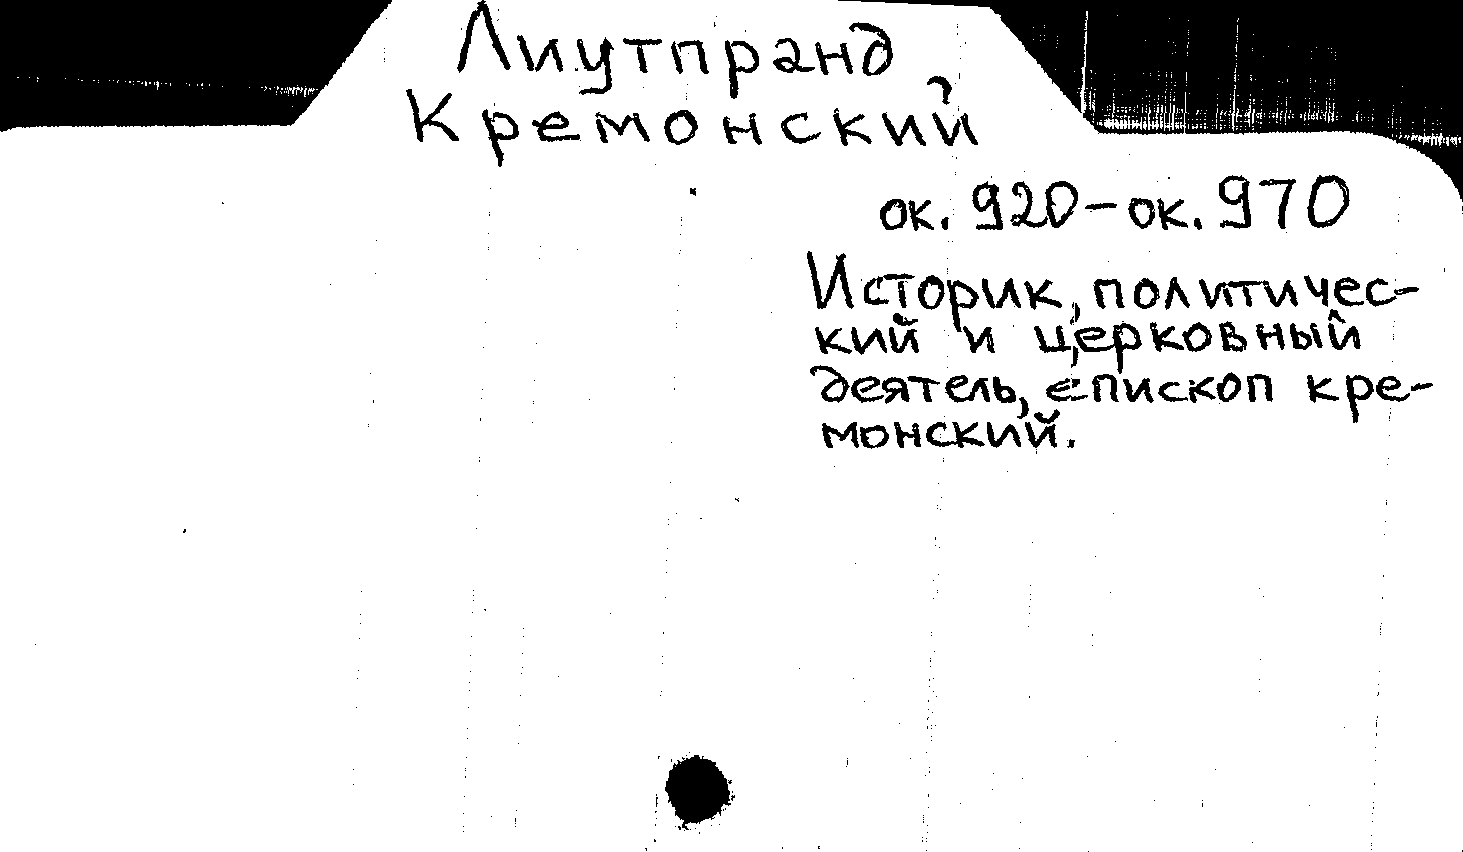 Лиутпранд
Кремонский
ок. 920-ок. 970
Историк, политичес-
кий и церковный
деятель, епископ кре-
монский.